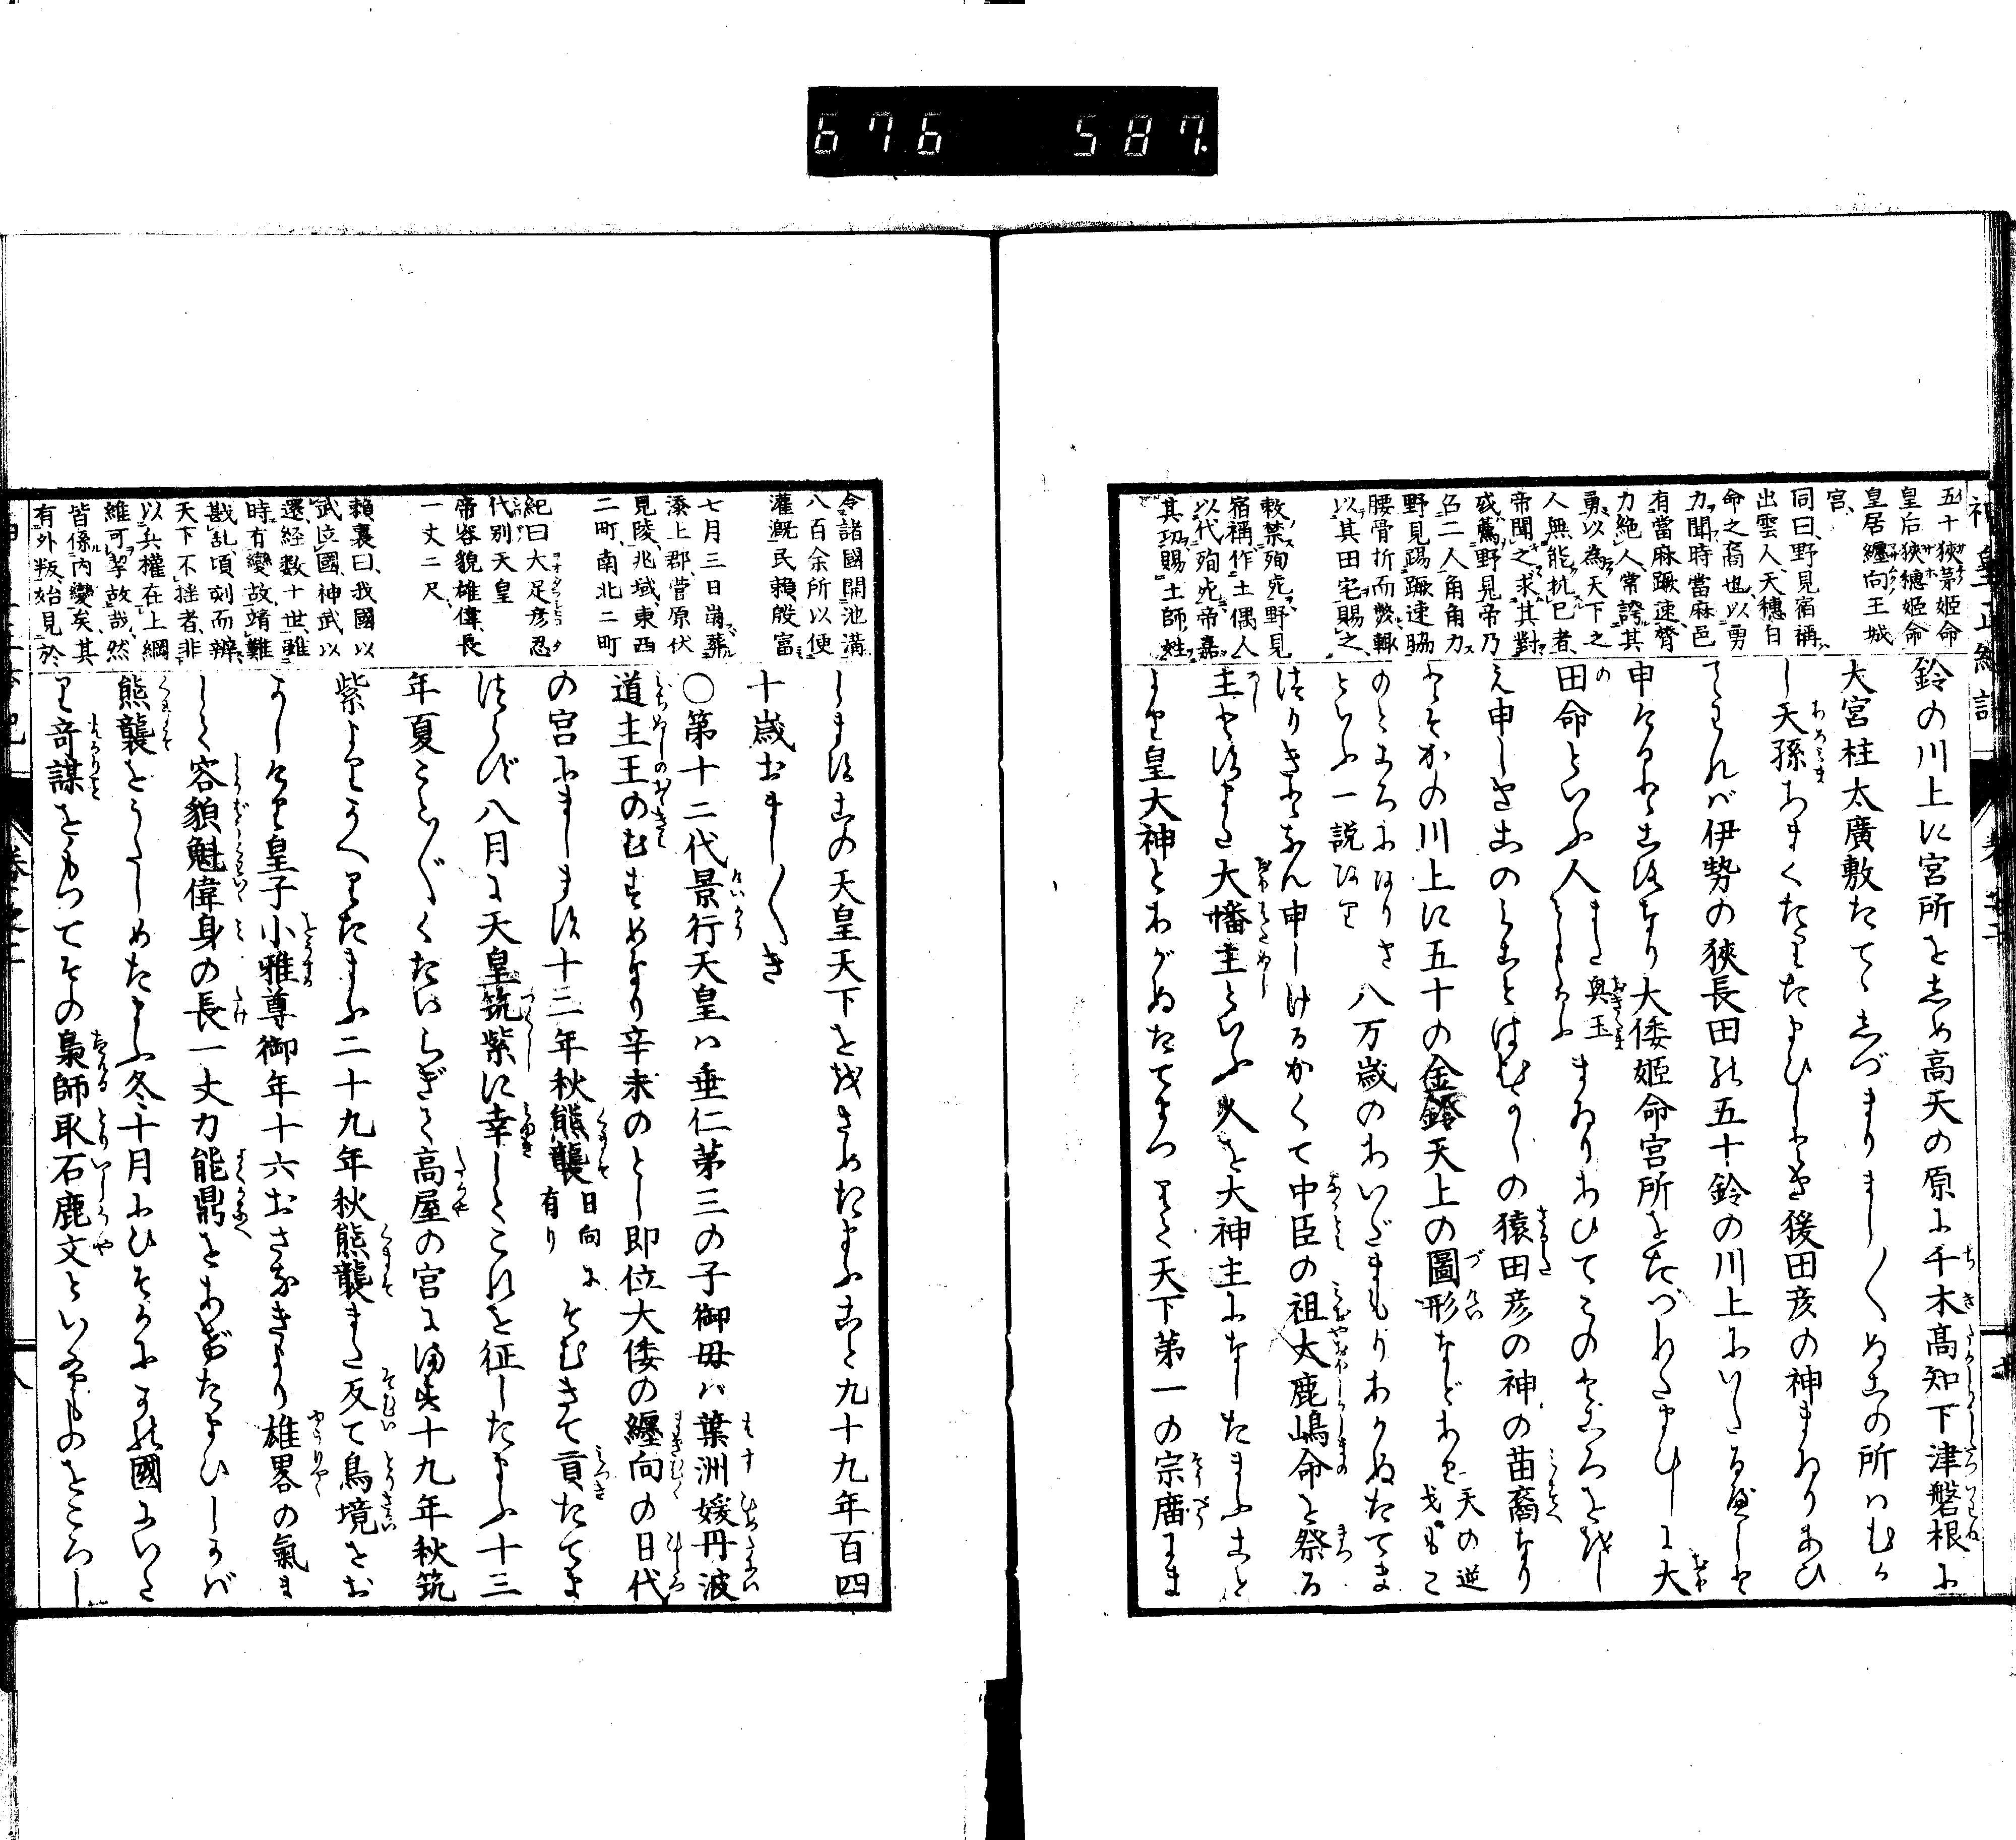 676 587.
五十狹茅姬命
皇后狹穗姬命
皇居纏向王城
宮、
同曰、野見宿禰
出雲人、天穗日
命之裔也、以勇
力聞時當麻邑
有當麻蹶速、膂
力絕人、常誇其
勇、以為天下之
人無能抗已者、
帝聞之、求其對
或薦野見帝乃
召二人角角力
野見踢蹶速脇
腰骨折而斃輙
以其田宅賜之、
敕禁殉死野見
宿禰作土偶人
以代殉死帝嘉
其功賜土師姓
鈴の川上に宮所をしめ高天の原に千木高知下津磐根に
大宮柱太廣敷たてゝしづまりまし〳〵ぬこの所はむか
し天孫あまくたりたまひしとき猨田彦の神まゐりあひ
てわれバ伊勢の狹長田の五十鈴の川上にいたるべしと
申けるところなり大倭姬命宮所をたづねたまひしに大
田命といふ人また奥玉ともいふまゐりあひてこのところをおし
え申しきこのみことはむかしの猿田彦の神の苗裔なり
とそかの川上に五十の金鈴天上の圖形などあり天の逆戈もこ
のところにありきといふ一説あり八万歳のあいだまもりあがめたてま
つりきとなん申しけるかくて中臣の祖大鹿嶋命を祭る
主とすまた大幡主といふ人を大神主になしたまふこと
より皇大神とあがめたてまつりて天下第一の宗廟にま
令諸國開池溝
八百余所以便
灌漑民賴殷富
七月三日崩葬
添上郡、菅原伏
見陵兆域、東西
二町、南北二町
紀曰大足彦忍
代别天皇
帝容貌雄偉、長
一丈二尺、
賴襄曰、我國以
武立國、神武以
還、経数十世、雖
時有變故靖難
戡乱、頃刻而辨、
天下不揺者、非
以兵權在上綱
維可挈故哉、然
皆係内變矣、其
有外叛、始見於
しますこの天皇天下ををさめたまふこと九十九年百四
十歳おまし〳〵き
〇第十二代景行天皇ハ垂仁第三の子御母ハ葉洲媛丹波
道主王のむすめなり辛未のとし即位大倭の纒向の日代
の宮にまします十二年秋熊襲日向に有りそむきて貢たてま
つらず八月に天皇筑紫に幸してこれを征したまふ十三
年夏こと〴〵くたいらぎて高屋の宮にます十九年秋筑
紫よりかへりたまふ二十九年秋熊襲また反て鳥境をお
かしけり皇子小碓尊御年十六おさなきより雄畧の氣ま
して容貌魁偉身の長一丈力能鼎をあげたまひしかば
熊襲をうたしめたまふ冬十月にひそかにかの國にいた
り奇謀をもつてその梟師取石鹿文といふものをころし